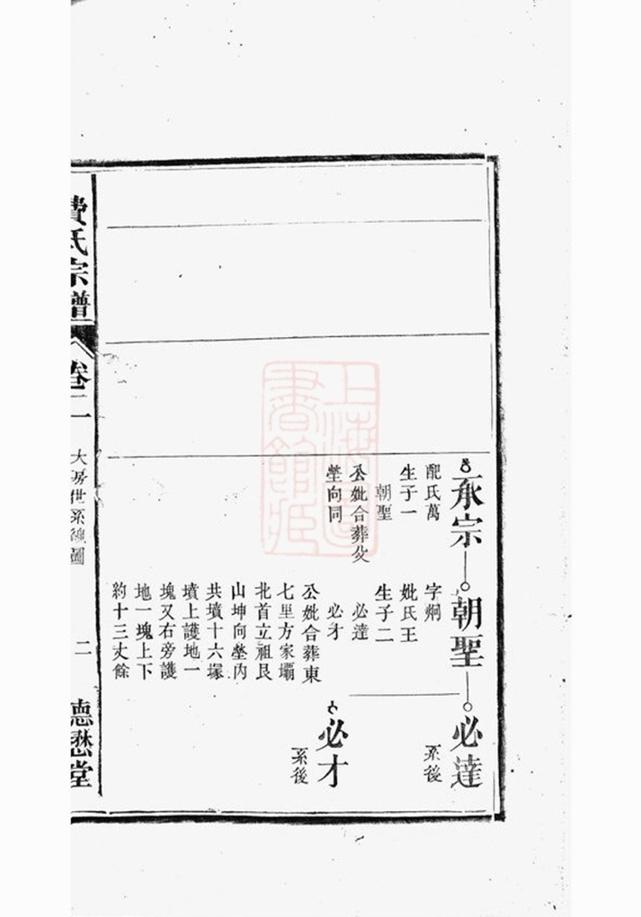 承宗
配氏萬
生子一
朝聖
公妣合葬父
塋向同
朝聖
字炯
妣氏王
生子二
必達
必才
公妣合葬東
七里方家壩
北首立祖艮
山坤向塋内
共墳十六塚
墳上護地一
塊又右旁護
地一塊上下
約十三丈餘
必達
系後
必才
系後
費氏宗譜
卷二
大房世系總圖
二
德懋堂
上海圖書館藏